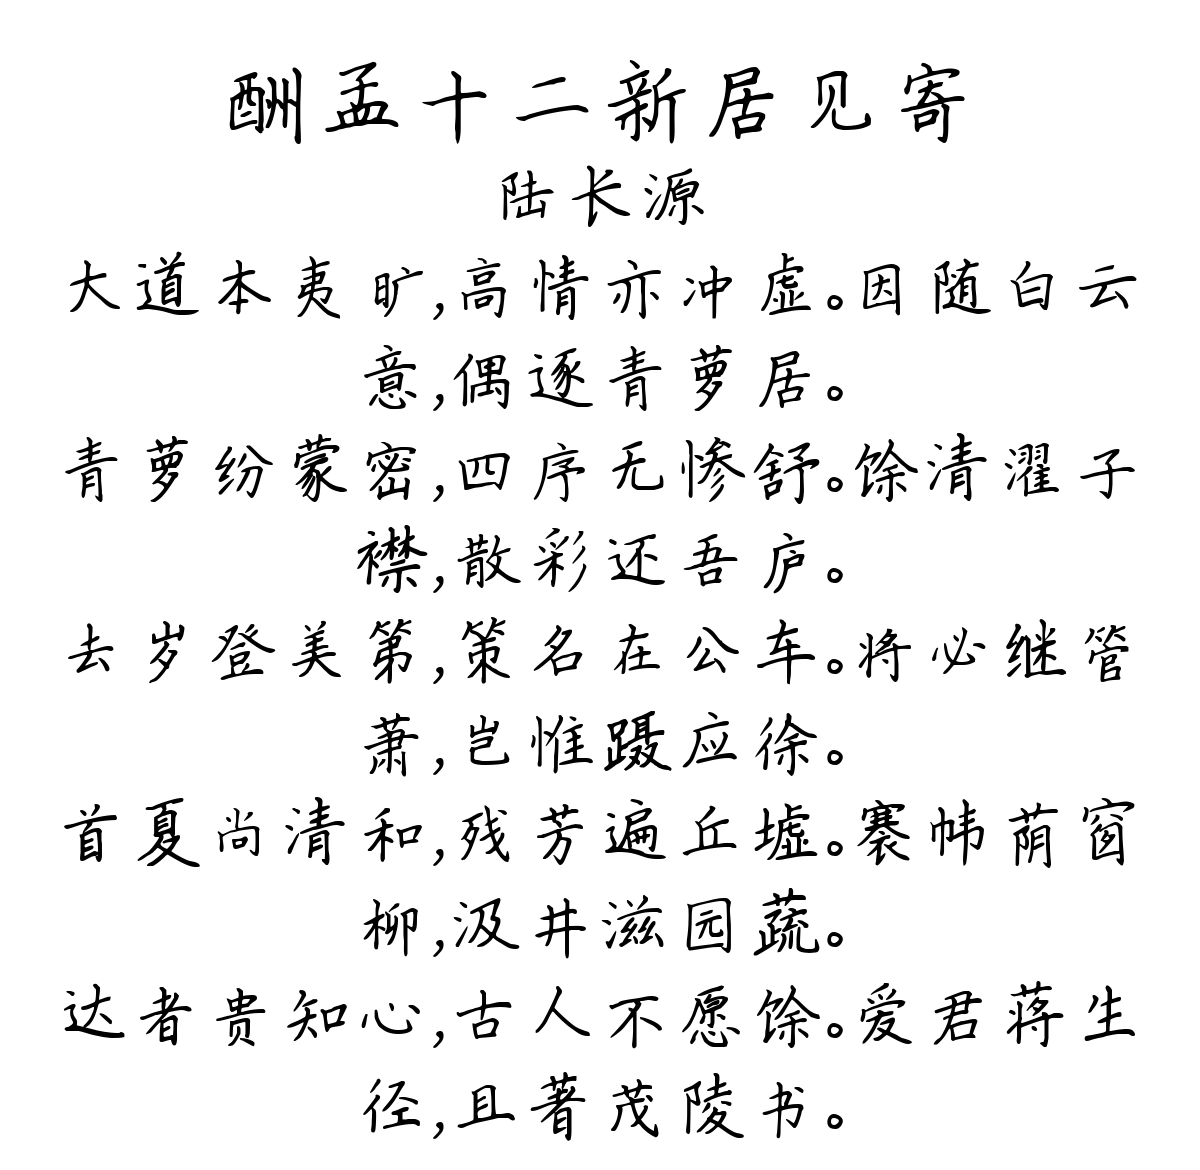 酬孟十二新居见寄
陆长源
大道本夷旷,高情亦冲虚。因随白云
意,偶逐青萝居。
青萝纷蒙密,四序无惨舒。馀清濯子
襟,散彩还吾庐。
去岁登美第,策名在公车。将必继管
萧,岂惟蹑应徐。
首夏尚清和,残芳遍丘墟。褰帏荫窗
柳,汲井滋园蔬。
达者贵知心,古人不愿馀。爱君蒋生
径,且著茂陵书。